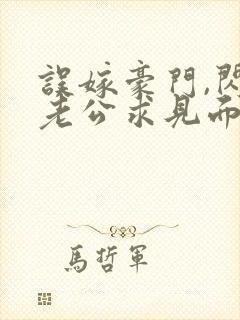 誤嫁豪門,閃
老公求見面
馬哲軍